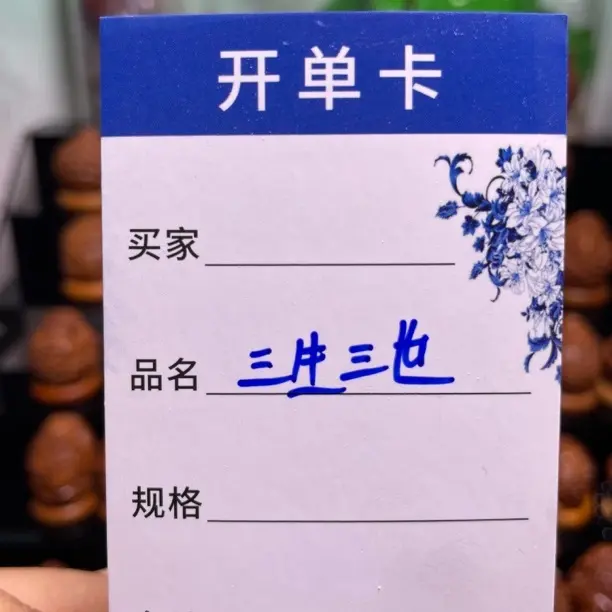 开单卡
买家
品名 三生三世
规格